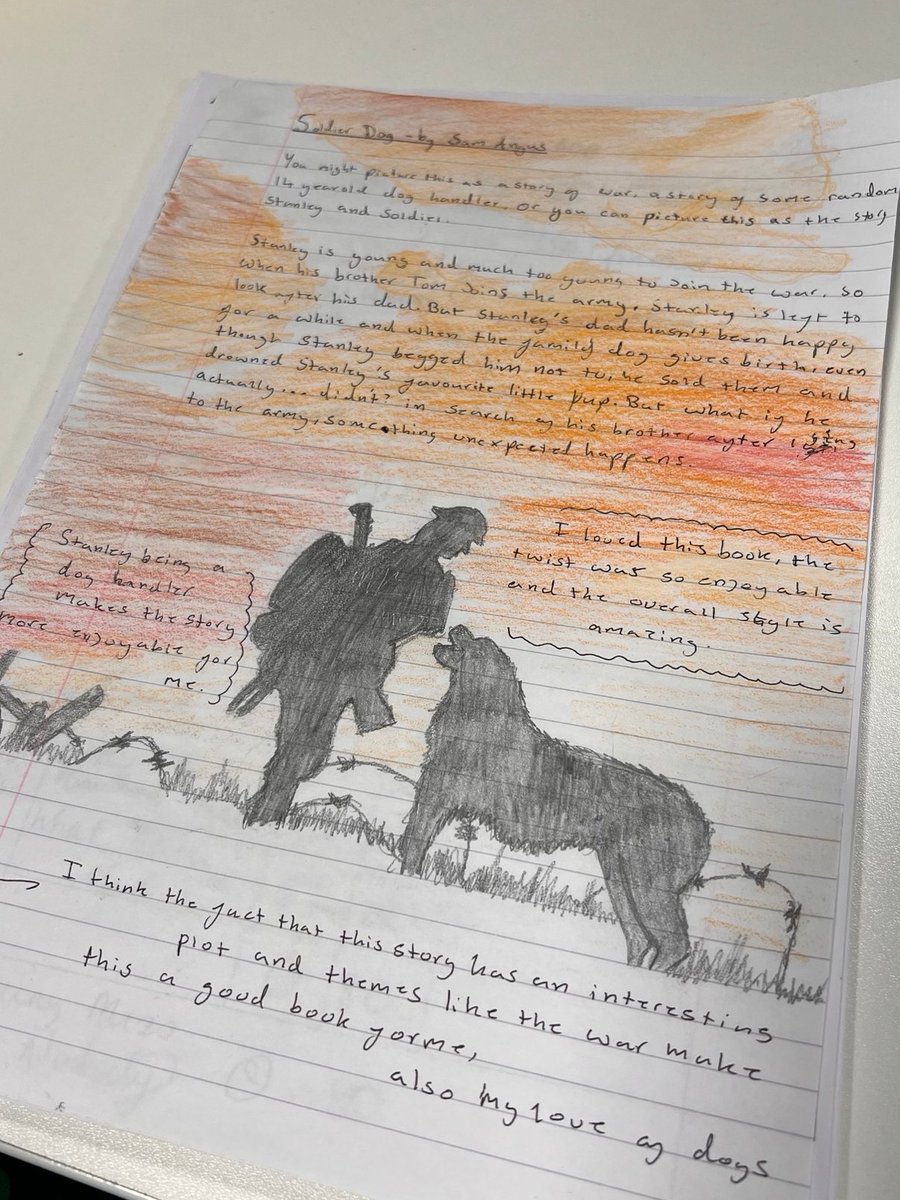 Soldier Dog - by Sam Angus
You might picture this as a story of war, a story of some random
14 year old dog handler. Or you can picture this as the story
Stanley and Soldier.
Stanley is young and much too young to join the war. So
when his brother Tom joins the army, Stanley is left to
look after his dad. But Stanley's dad hasn't been happy
for a while and when the family dog gives birth, even
though Stanley begged him not to, he sold them and
drowned Stanley's favourite little pup. But what if he
actually... didn't? in search of his brother after
to the army, something unexpected happens.
I loved this book, the
twist was so enjoyable
and the overall style is
amazing.
Stanley being a
dog handler
makes the story
more enjoyable for
me.
I think the fact that this story has an interesting
plot and themes like the war make
this a good book for me,
also my love of dogs